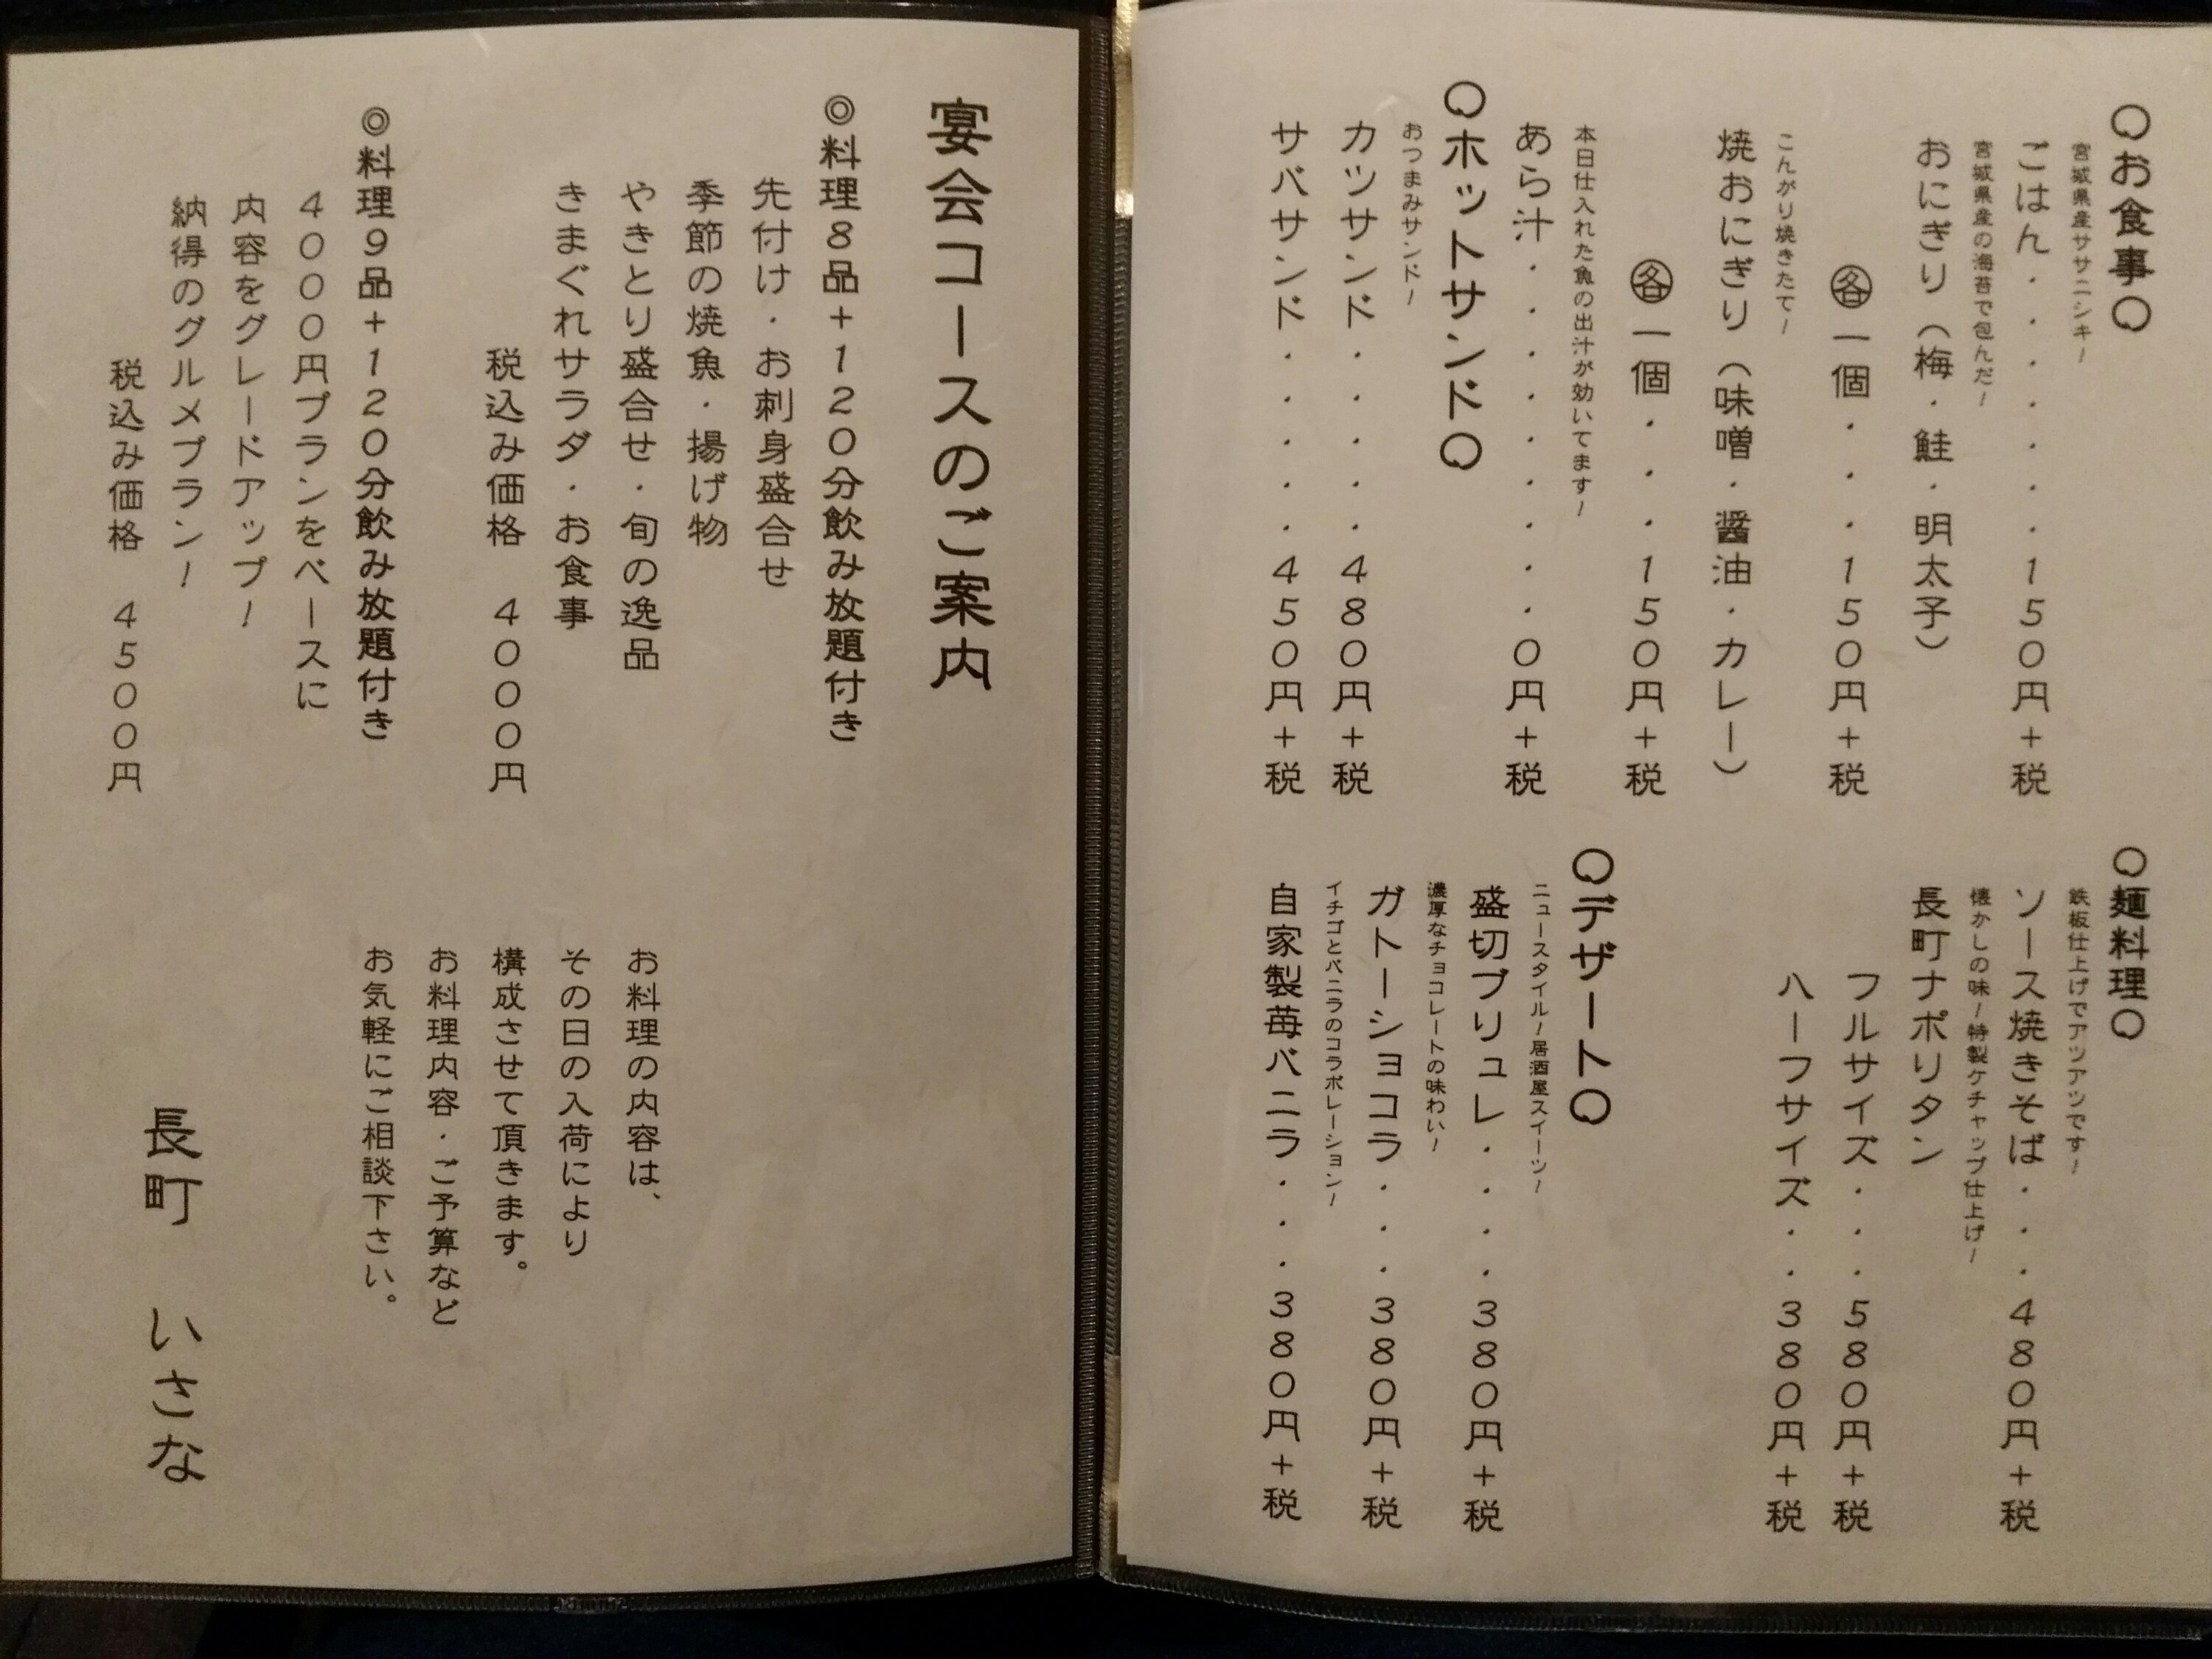 ○お食事○
宮城県産ササニシキ！
ごはん・・・・・・・150円+税
宮城県産の海苔で包んだ！
おにぎり（梅・鮭・明太子）
各一個・・・150円+税
こんがり焼きたて！
焼おにぎり（味噌・醤油・カレー）
各一個・・・150円+税
本日仕入れた魚の出汁が効いてます！
あら汁・・・・・・・・・0円+税
○ホットサンド○
おつまみサンド！
カツサンド・・・・・480円+税
サバサンド・・・・・450円+税
○麺料理○
鉄板仕上げでアツアツです！
ソース焼きそば・・・480円+税
懐かしの味！特製ケチャップ仕上げ！
長町ナポリタン
フルサイズ・・・580円+税
ハーフサイズ・・380円+税
○デザート○
ニュースタイル！居酒屋スイーツ！
盛切ブリュレ・・・・380円+税
濃厚なチョコレートの味わい！
ガトーショコラ・・・380円+税
イチゴとバニラのコラボレーション！
自家製苺バニラ・・・380円+税
宴会コースのご案内
◎料理8品+120分飲み放題付き
先付け・お刺身盛合せ
季節の焼魚・揚げ物
やきとり盛合せ・旬の逸品
きまぐれサラダ・お食事
税込み価格 4000円
◎料理9品+120分飲み放題付き
4000円プランをベースに
内容をグレードアップ！
納得のグルメプラン！
税込み価格 4500円
お料理の内容は、
その日の入荷により
構成させて頂きます。
お料理内容・ご予算など
お気軽にご相談下さい。
長町 いさな